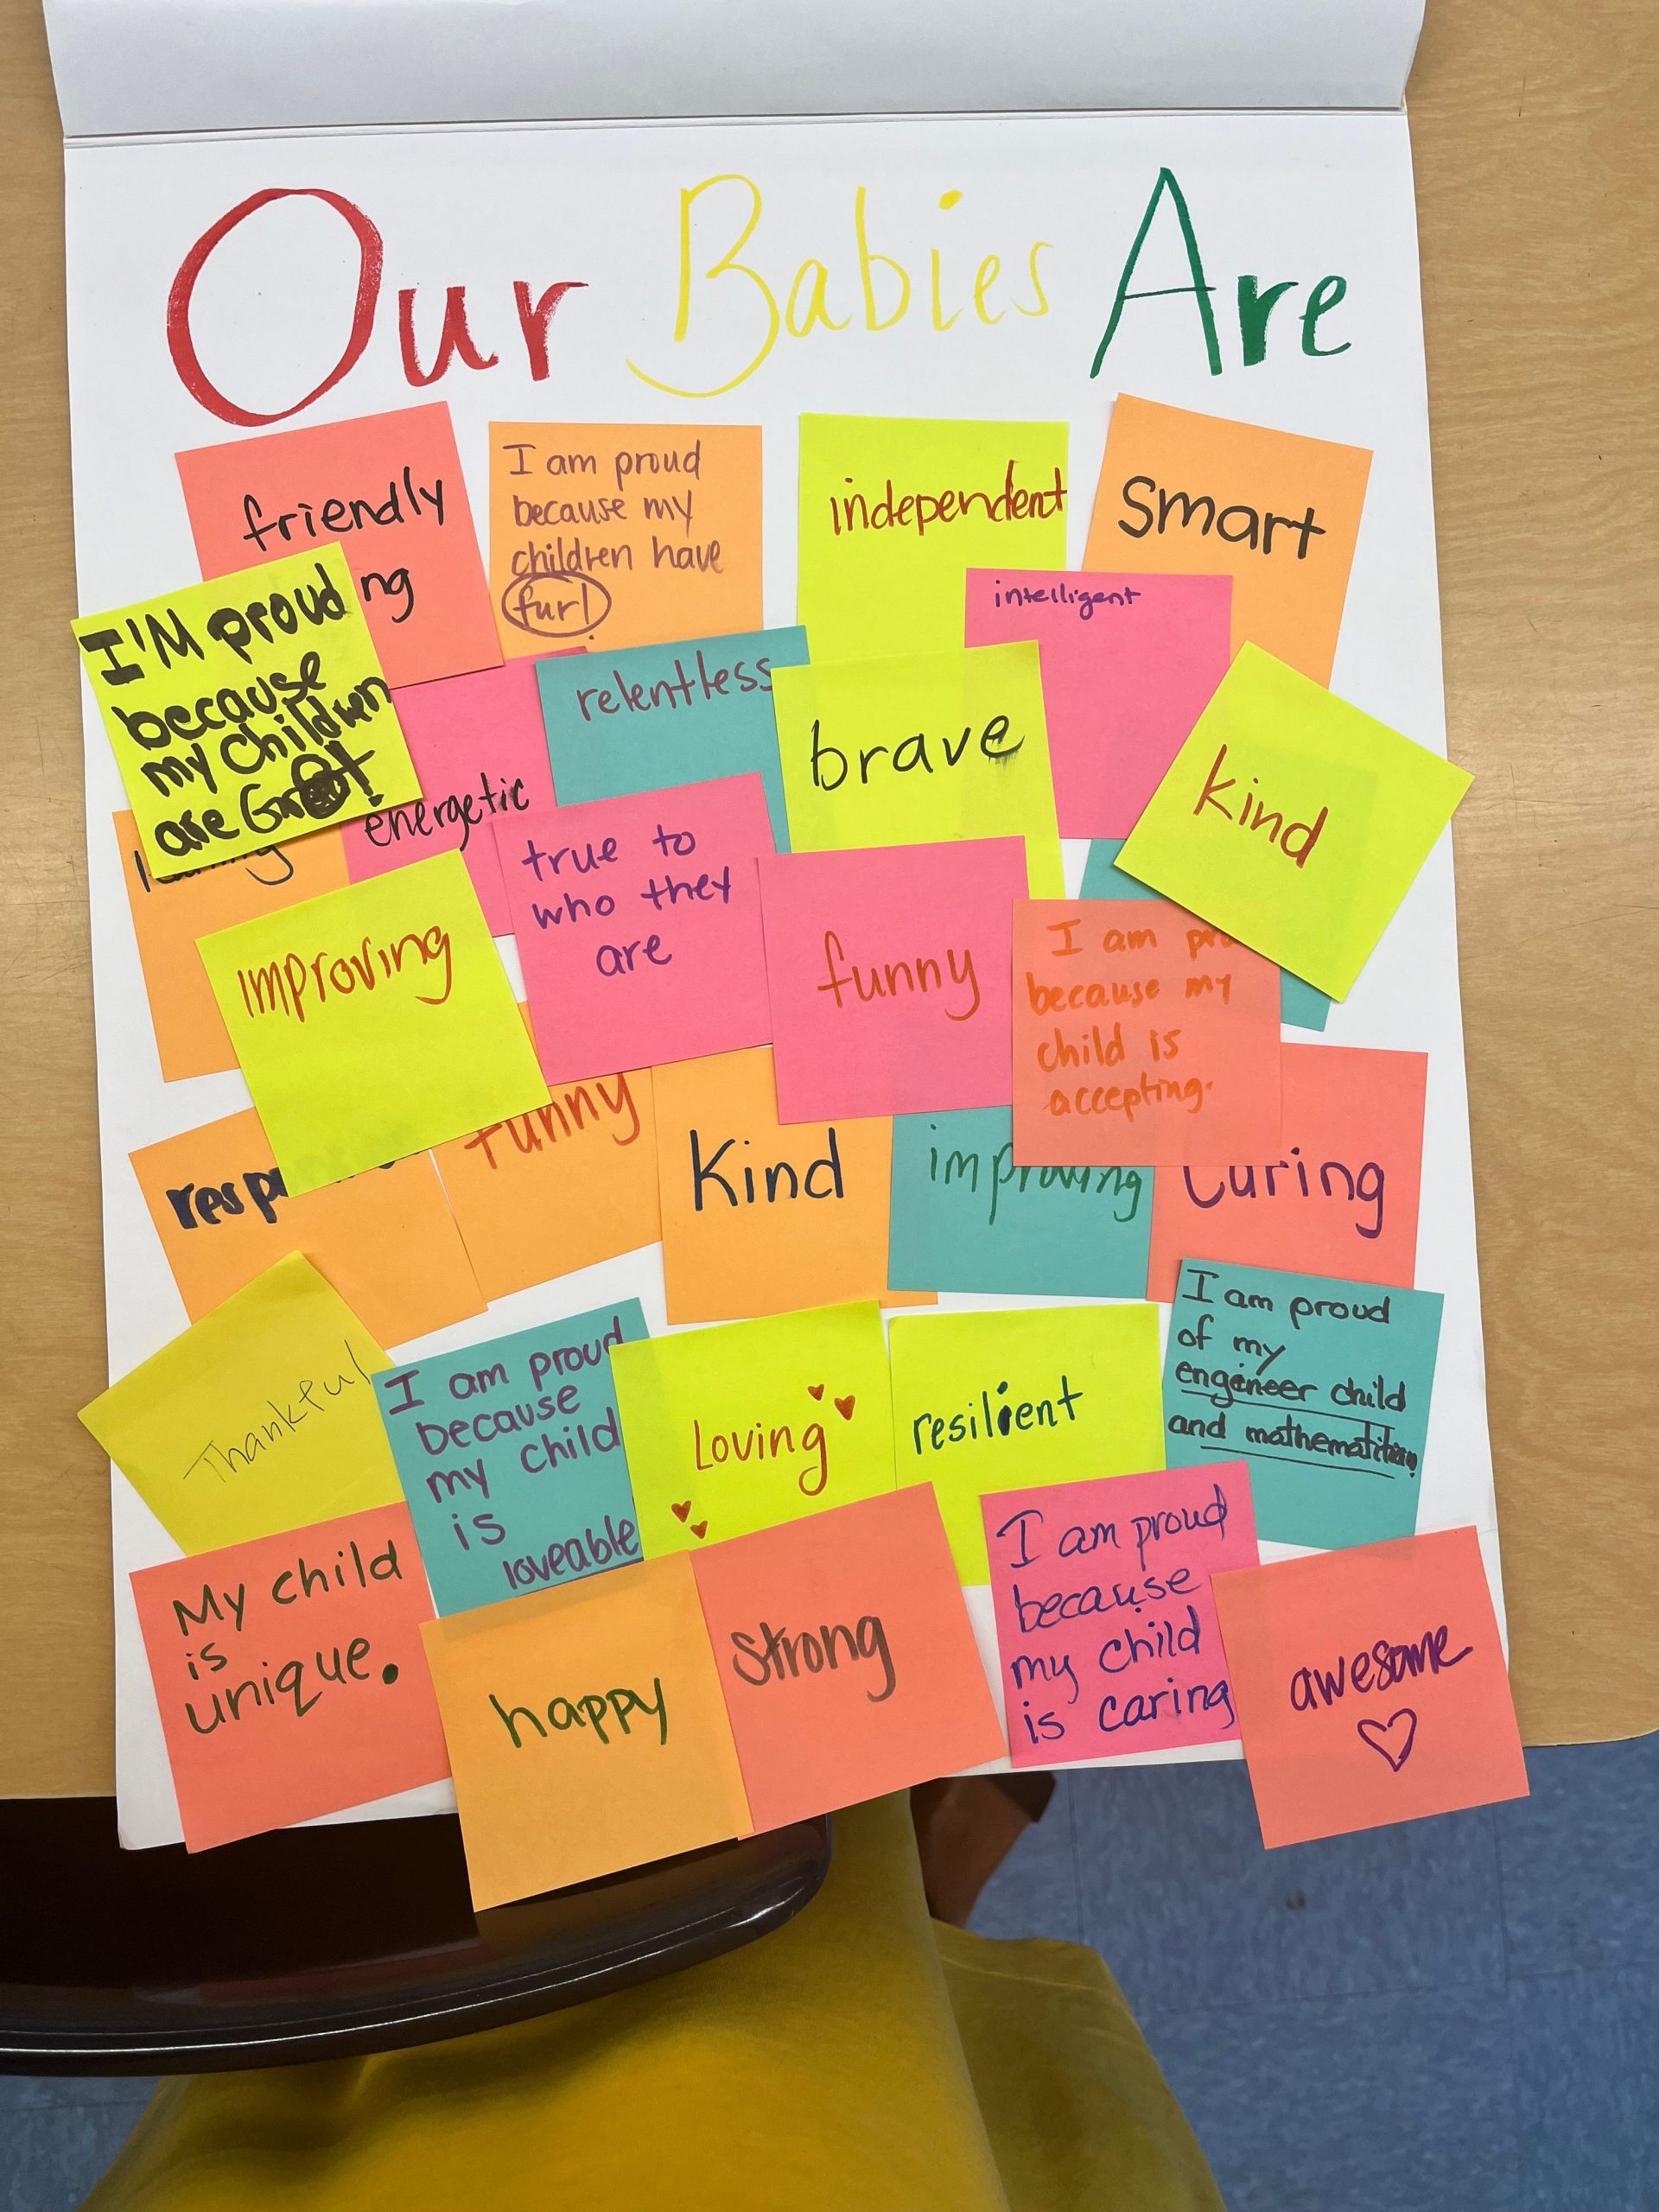 Our Babies Are
friendly
ng
I am proud
because my
children have
fur!
independent
smart
intelligent
I'M proud
because
my children
are
relentless
brave
kind
energetic
true to
who they
are
funny
improving
I am
because my
child is
accepting.
funny
Kind
improving
Caring
Thankful
I am proud
because
my child
is
loveable
Loving
resilient
I am proud
of my
engineer child
and
My child
is
unique.
happy
strong
I am proud
because
my child
is caring
awesome